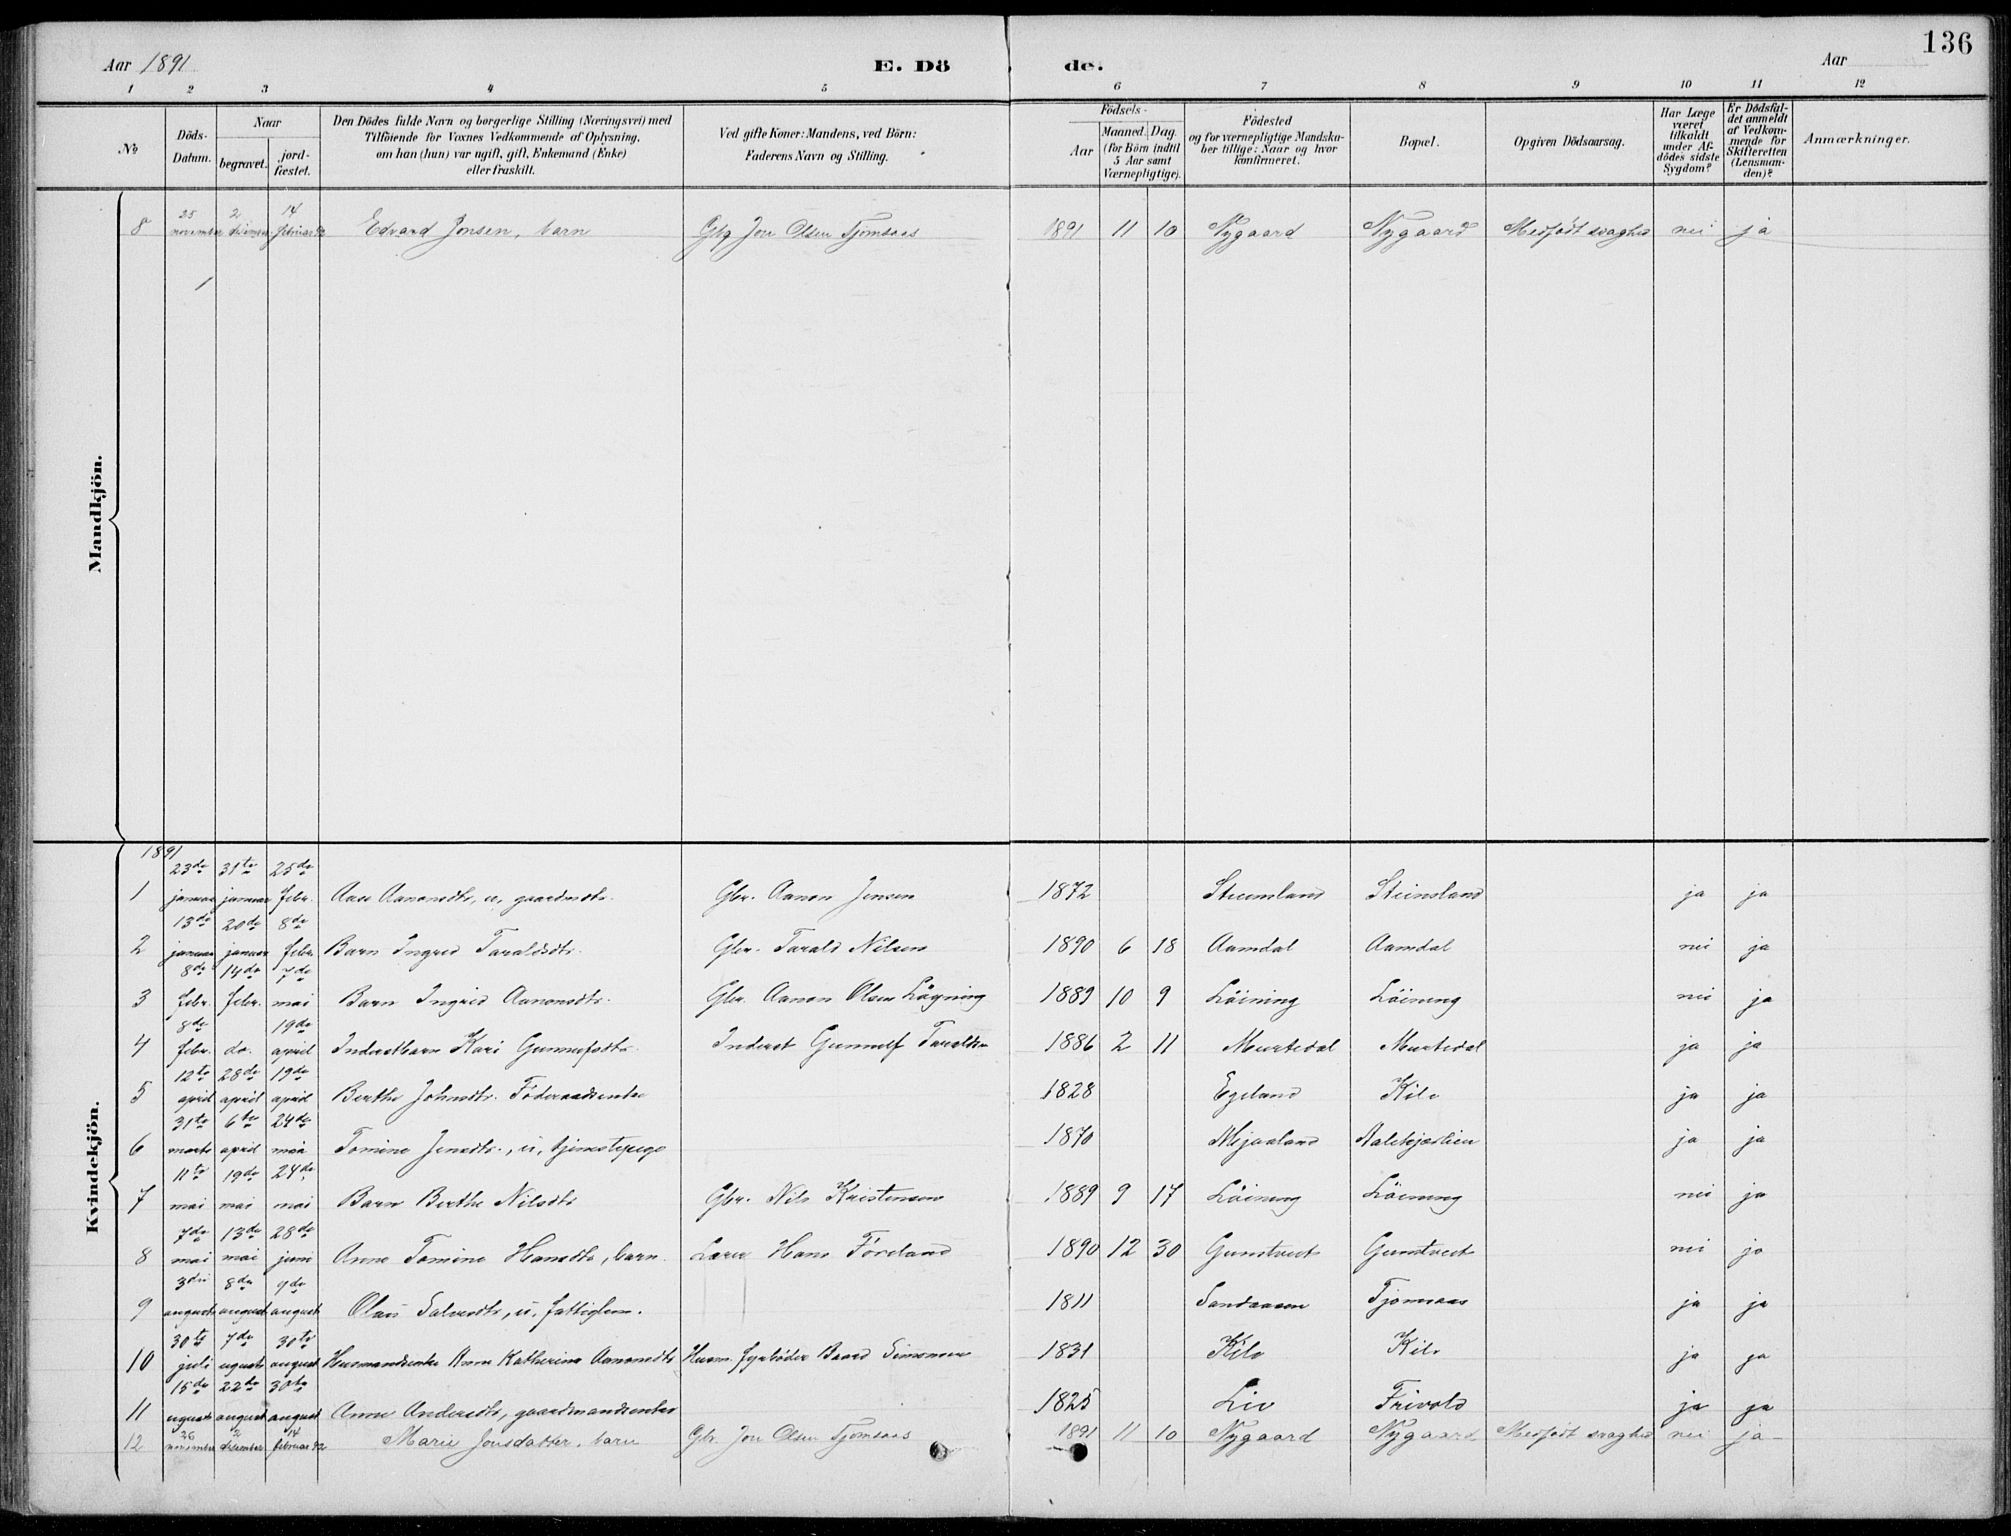 136
Aar 1891 E. Dö de. Aar
1 2 3 4 5 6 7 8 9 10 11 12
№ Döds-Datum. Naar begravet. jord-fæstet. Den Dödes fulde Navn og borgerlige Stilling (Næringsvei) med Tilföiende for Voxnes Vedkommende af Oplysning, om han (hun) var ugift, gift, Enkemand (Enke) eller fraskilt. Ved gifte Koner: Mandens, ved Börn: Faderens Navn og Stilling. Födsels- Aar Maaned. Dag. (for Börn indtil 5 Aar samt Værnepligtige). Födested og for værnepligtige Mandskaber tillige: Naar og hvor konfirmeret. Bopæl. Opgiven Dödsaarsag. Har Læge været tilkaldt under Afdödes sidste Sygdom? Er Dödsfaldet anmeldt af Vedkommende for Skifteretten (Lensmanden)? Anmærkninger.
Mandkjön.
8 25 november 2 desember 14 februar 92 Edvard Jonsen, barn Gbr Jon Olsen Tjomsaas 1891 11 10 Nygaard Nygaard Medfödt svaghed nei ja
Kvindekjön.
1891
1 23de januar 31te januar 25de febr. Aase Aanonsdtr. u, gaardmdtr. Gbr. Aanon Jensen 1872 Steensland Steinsland ja ja
2 13de januar 20de januar 8de febr. Barn Ingrid Taraldsdtr. Gbr. Tarald Nilsen 1890 6 18 Aamdal Aamdal nei ja
3 8de febr. 14de febr. 7de mai Barn Ingrid Aanonsdtr. Gbr. Aanon Olsen Lögning 1889 10 9 Löining Löining nei ja
4 8de febr. do. 19de april Inderstbarn Kari Gunnufsdtr. Inderst Gunnulf Taraldsen 1886 2 11 Murtedal Murtedal ja ja
5 12te april 28de april 19de april Berthe Johnsdtr. Föderaadsenke 1828 Egeland Kile ja ja
6 31te marts 6te april 24de mai Tomine Jensdtr., u, tjenestepige 1870 Mjaaland ja ja
7 11te mai 19de mai 24de mai Barn Berthe Nilsdtr Gbr. Nils Kristensen 1889 9 17 Löining Löining nei ja
8 7de mai 13de mai 28de juni Anne Tomine Hansdtr, barn Lærer Hans Föreland 1890 12 30 Gunstveit Gunstveit nei ja
9 3die august 8de august 9de august Olau Salvesdtr, u, fattiglem. 1811 Sandaasen Tjomsaas ja ja
10 30te juli 7de ugust 30te august Husmandsenke Anne Katherine Aanonsdtr Husm. fyrböder Baard Simonsen 1831 Kile Kile ja ja
11 15de ugust 22de august 30te august Anne Andersdtr, gaardmandsenke 1825 Liv Frivold ja ja
12 26 november 2 desember 14 februar 92 Marie Jonsdatter, barn Gbr. Jon Olsen Tjomsaas 1891 11 10 Nygaard Nygaard Medfödt svaghed nei ja